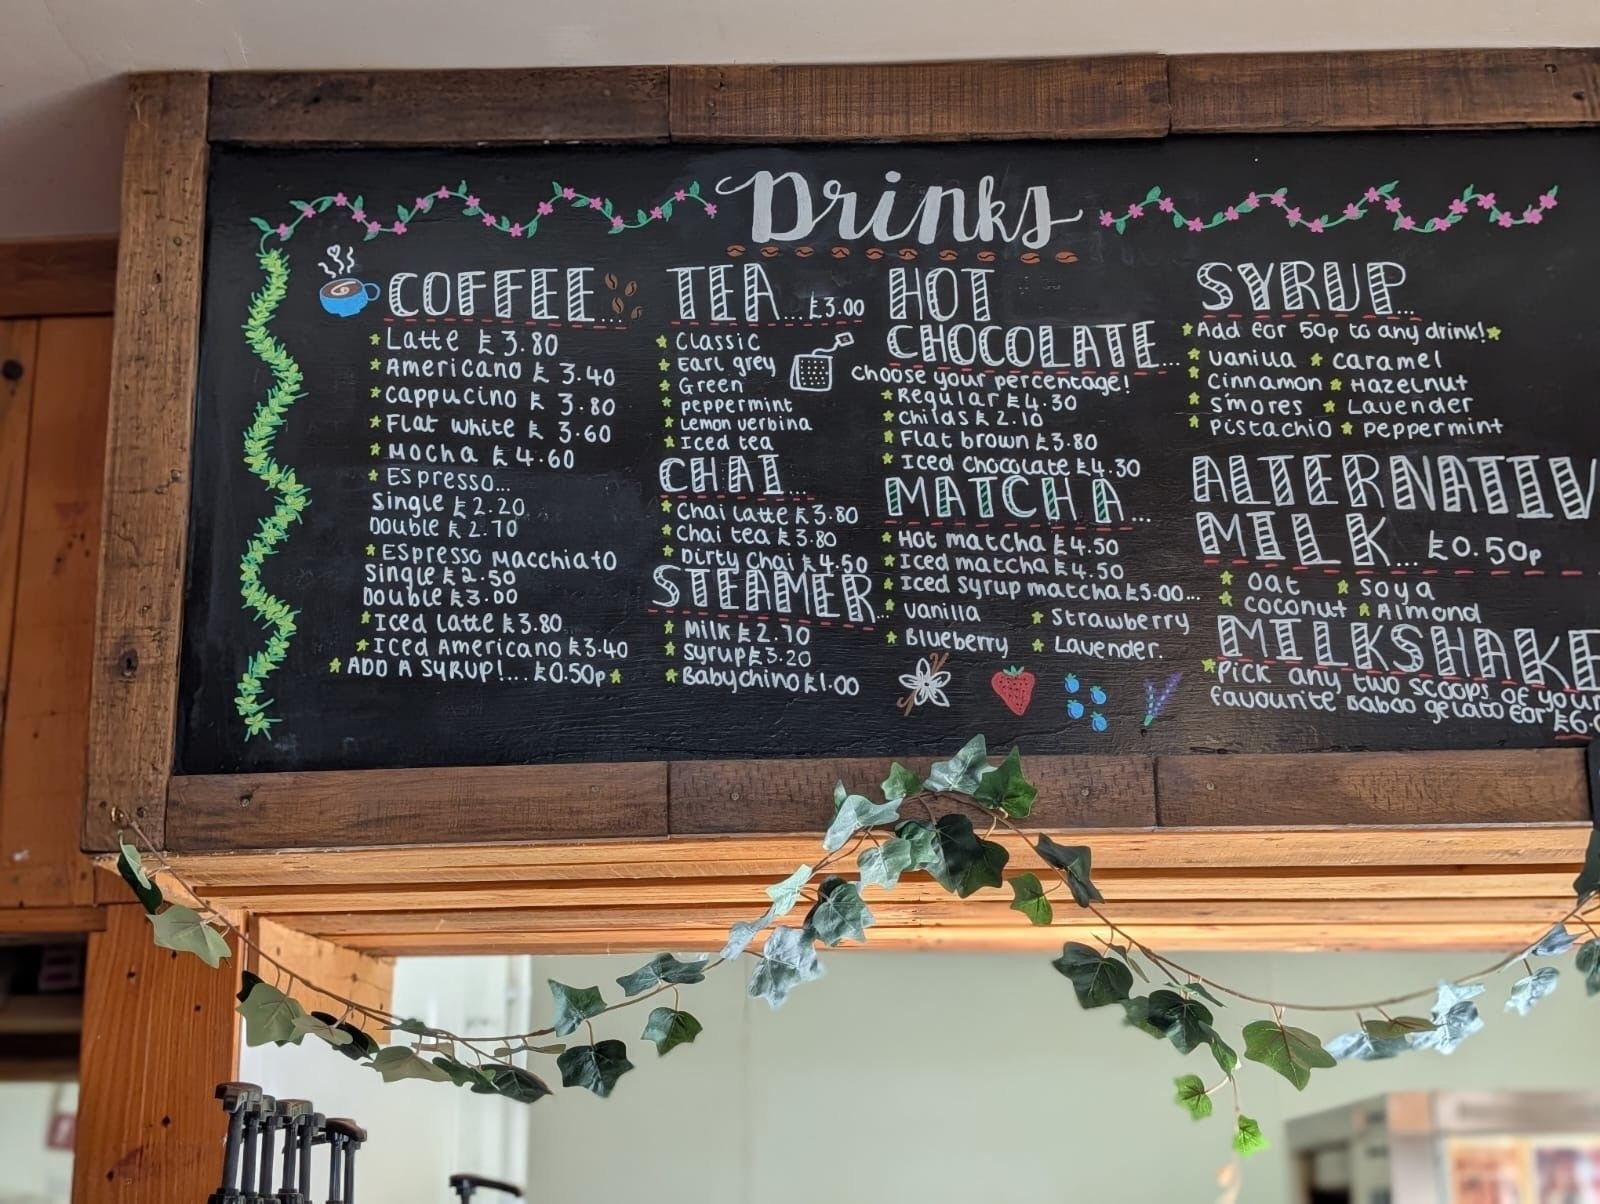 Drinks
COFFEE...
Latte £3.80
Americano £3.40
Cappucino £3.80
Flat white £3.60
Mocha £4.60
Espresso...
Single £2.20
Double £2.70
Espresso Macchiato
Single £2.50
Double £3.00
Iced Latte £3.80
Iced Americano £3.40
ADD A SYRUP!... £0.50p
TEA... £3.00
Classic
Earl grey
Green
peppermint
Lemon verbina
Iced tea
CHAI...
Chai Latte £3.80
Chai tea £3.80
Dirty Chai £4.50
STEAMER...
Milk £2.70
Syrup £3.20
Babychino £1.00
HOT
CHOCOLATE...
Choose your percentage!
Regular £4.30
Childs £2.10
Flat brown £3.80
Iced chocolate £4.30
MATCHA...
Hot matcha £4.50
Iced matcha £4.50
Iced Syrup matcha £5.00...
Vanilla Strawberry
Blueberry Lavender.
SYRUP...
Add for 50p to any drink!
Vanilla Caramel
Cinnamon Hazelnut
S'mores Lavender
Pistachio Peppermint
ALTERNATIV
MILK... £0.50p
Oat Soya
Coconut Almond
MILKSHAKE
Pick any two scoops of your
favourite Baboo gelato for £6.